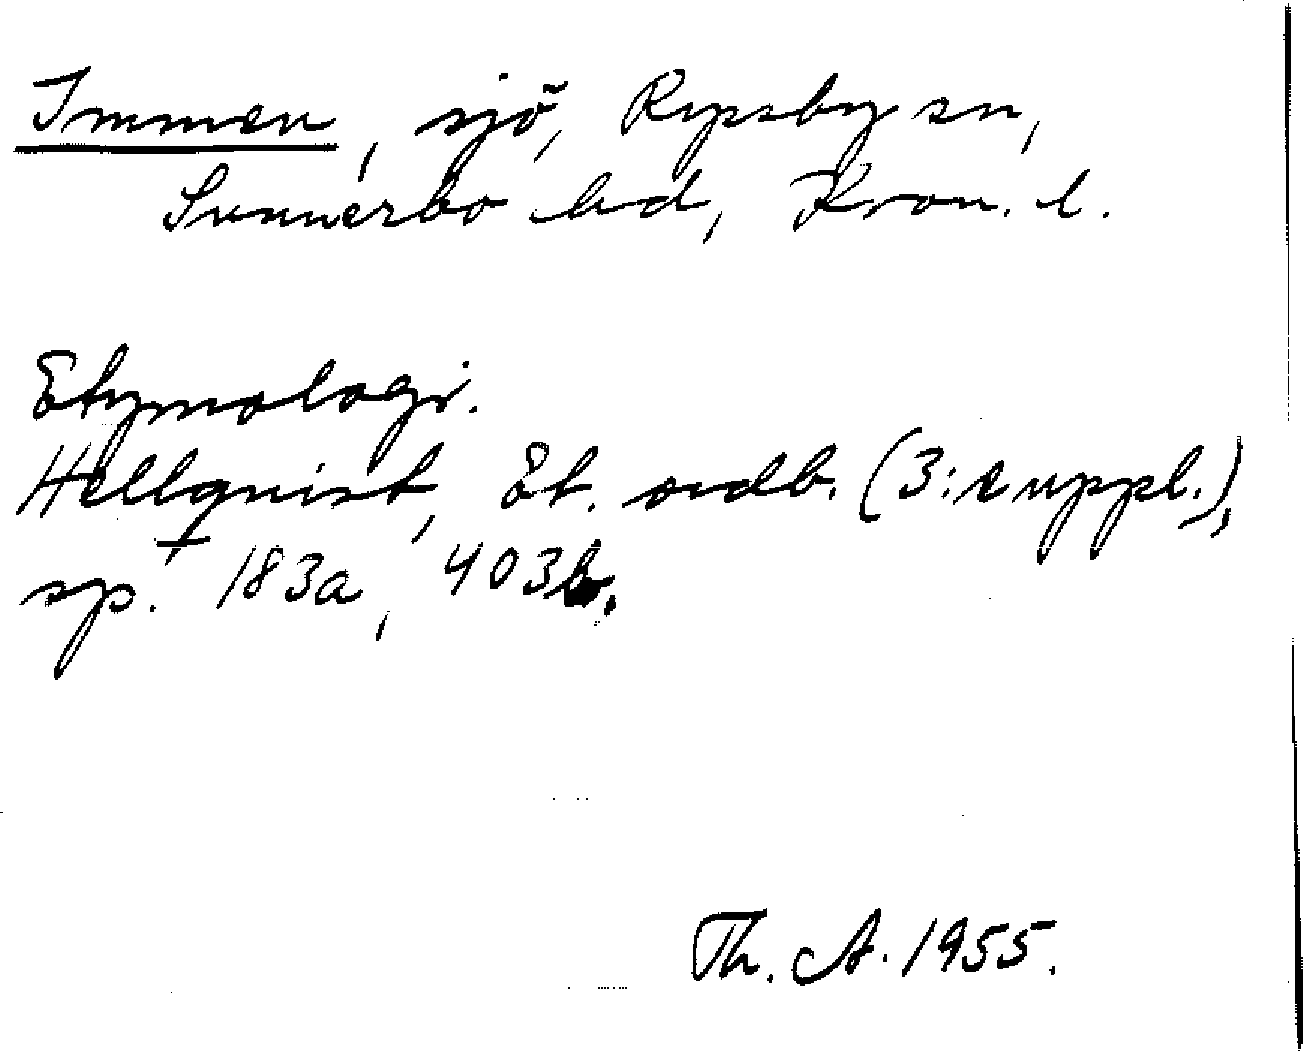 Immen, sjö, Ryssby sn,
Sunnerbo hd, Kron. l.
Etymologi.
Hellquist, Et. ordb. (3:e uppl.),
sp. 183a, 403b.
Th. A. 1955.